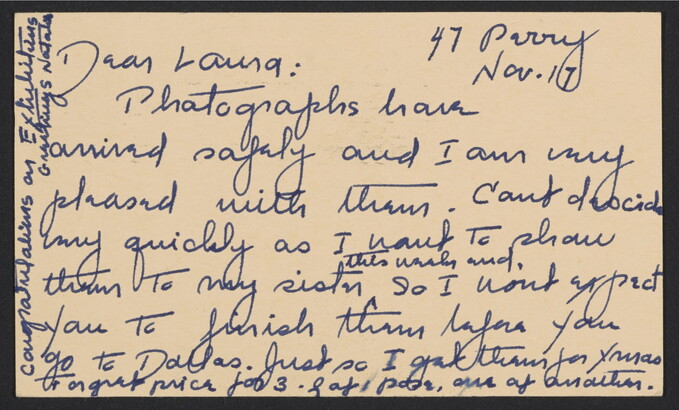 47 Perry
Nov. 17
Dear Laura:
Photographs have
arrived safely and I am very
pleased with them. Can't decide
very quickly as I want to show
them to my sister this week end, so I won't expect
you to finish them before you
go to Dallas. Just so I get them for Xmas
Forgot price for 3 - 2 of 1 pose, one of another.
Congratulations on Exhibitions
Greetings Natalie